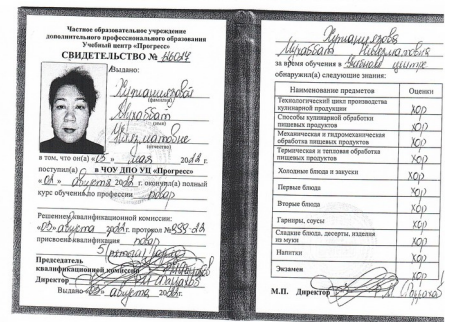 Частное образовательное учреждение
дополнительного профессионального образования
Учебный центр «Прогресс»
СВИДЕТЕЛЬСТВО №
Выдано:
(фамилия)
в том, что он(а) «03» мая 2022 г.
поступил(а) в ЧОУ ДПО УЦ «Прогресс»
«02» августа 2022 г. окончил(а) полный
курс обучения по профессии повар
Решением квалификационной комиссии:
«03» августа 2022 г. протокол № 998-22
присвоена квалификация повар
Председатель
квалификационной комиссии
Директор
Выдано «03» августа 2022 г.
за время обучения в Учебном центре
обнаружил(а) следующие знания:
Наименование предметов Оценки
Технологический цикл производства
кулинарной продукции хор
Способы кулинарной обработки
пищевых продуктов хор
Механическая и гидромеханическая
обработка пищевых продуктов хор
Термическая и тепловая обработка
пищевых продуктов хор
Холодные блюда и закуски хор
Первые блюда хор
Вторые блюда хор
Гарниры, соусы хор
Сладкие блюда, десерты, изделия
из муки хор
Напитки хор
Экзамен хор
М.П. Директор